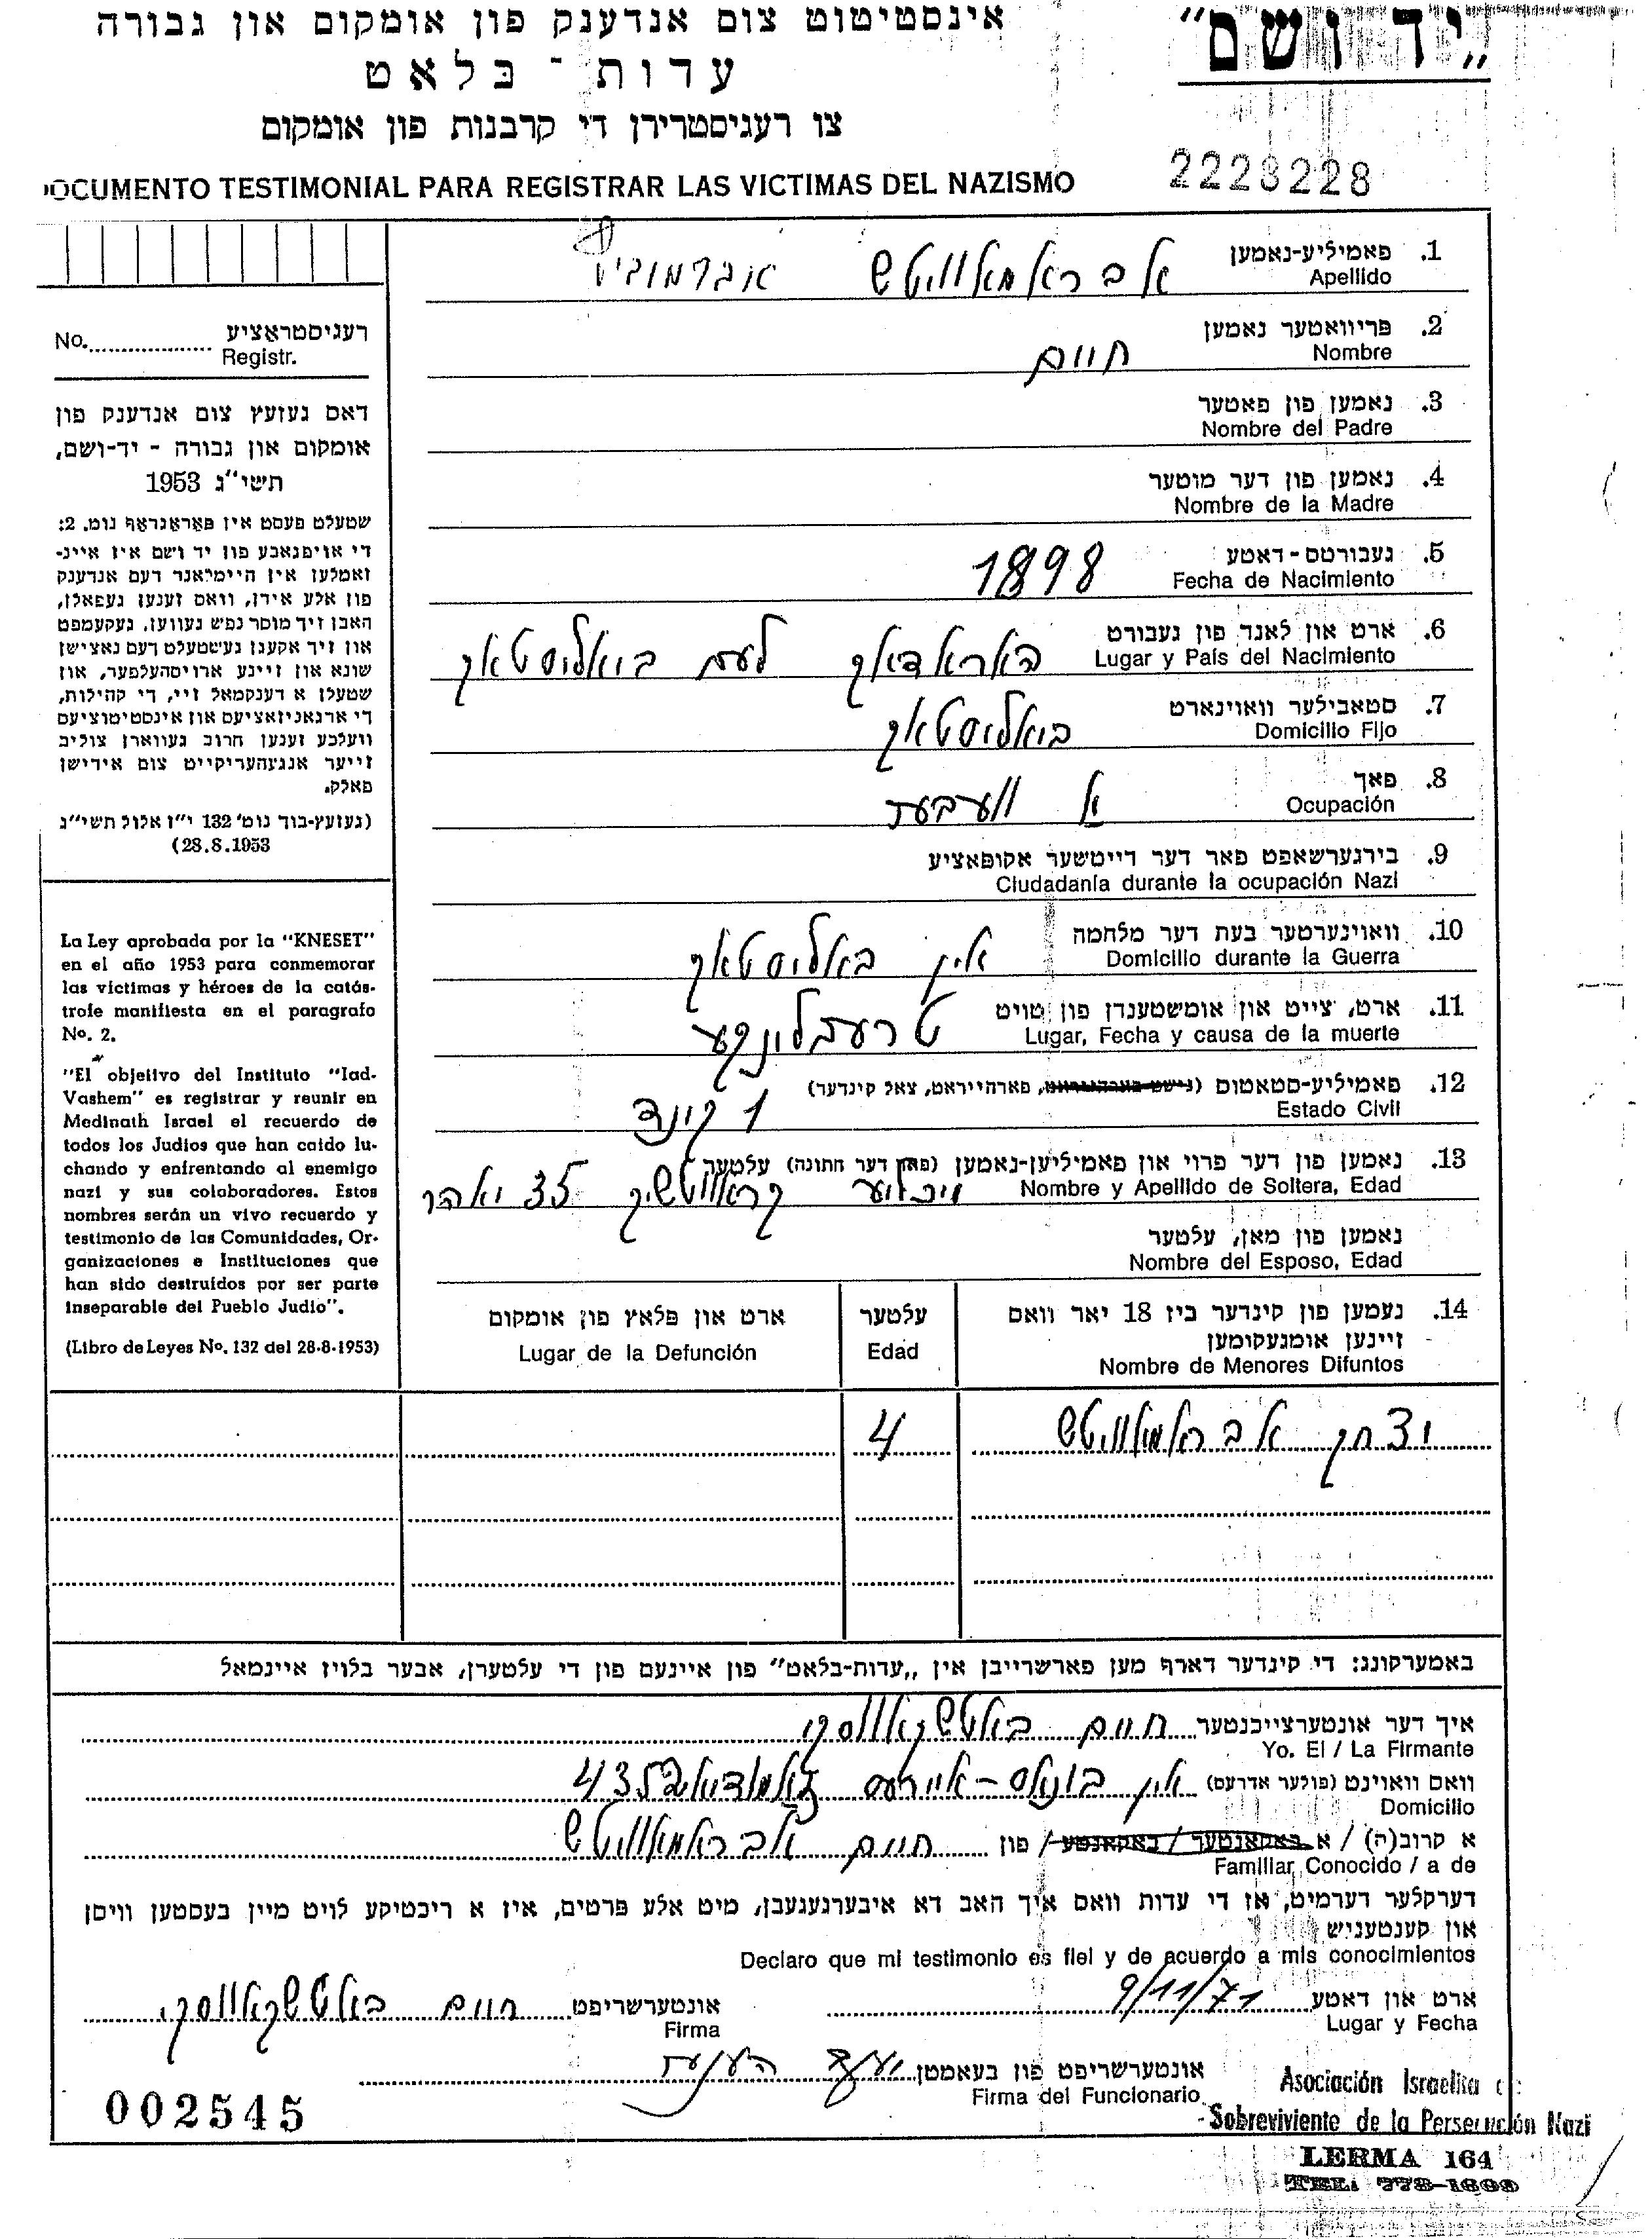 „יד ושם”
אינסטיטוט צום אנדענק פון אומקום און גבורה
עדות - בלאט
צו רעגיסטרירן די קרבנות פון אומקום
DOCUMENTO TESTIMONIAL PARA REGISTRAR LAS VICTIMAS DEL NAZISMO
2223228
רעגיסטראציע
No. Registr.
דאס געזעץ צום אנדענק פון
אומקום און גבורה - יד-ושם,
תשי״ג 1953
שטעלט פעסט אין פאראגראף נומ. 2:
די אויפגאבע פון יד ושם איז איינ-
זאמלען אין היימלאנד דעם אנדענק
פון אלע אידן, וואס זענען געפאלן,
האבן זיך מוסר נפש געווען, געקעמפט
און זיך אקעגן געשטעלט דעם נאצישן
שונא און זיינע ארויסהעלפער, און
שטעלן א דענקמאל זיי, די קהילות,
די ארגאניזאציעס און אינסטיטוציעס
וועלכע זענען חרוב געווארן צוליב
זייער אנגעהעריקייט צום אידישן
פאלק.
(געזעץ-בוך נומ׳ 132 י״ז אלול תשי״ג
28.8.1953)
La Ley aprobada por la "KNESET"
en el año 1953 para conmemorar
las víctimas y héroes de la catás-
trofe manifiesta en el paragrafo
No. 2.
"El objetivo del Instituto "Iad-
Vashem" es registrar y reunir en
Medinath Israel el recuerdo de
todos los Judíos que han caido lu-
chando y enfrentando al enemigo
nazi y sus colaboradores. Estos
nombres serán un vivo recuerdo y
testimonio de las Comunidades, Or-
ganizaciones e Instituciones que
han sido destruídos por ser parte
inseparable del Pueblo Judío".
(Libro de Leyes No. 132 del 28-8-1953)
1. פאמיליע-נאמען
Apellido
אבראמאוויטש אברמוביץ
2. פריוואטער נאמען
Nombre
חיים
3. נאמען פון פאטער
Nombre del Padre
4. נאמען פון דער מוטער
Nombre de la Madre
5. געבורטס-דאטע
Fecha de Nacimiento
1898
6. ארט און לאנד פון געבורט
Lugar y País del Nacimiento
האראדאק לעם ביאליסטאק
7. סטאבילער וואוינארט
Domicilio Fijo
ביאליסטאק
8. פאך
Ocupación
א וועבער
9. בירגערשאפט פאר דער דייטשער אקופאציע
Ciudadanía durante la ocupación Nazi
10. וואוינערטער בעת דער מלחמה
Domicilio durante la Guerra
אין באליסטאק
11. ארט, צייט און אומשטענדן פון טויט
Lugar, Fecha y causa de la muerte
טרעבלינקע
12. פאמיליע-סטאטוס (נישט פארהייראט, פארהייראט, צאל קינדער)
Estado Civil
1 קינד
13. נאמען פון דער פרוי און פאמיליען-נאמען (פאר דער חתונה) עלטער
Nombre y Apellido de Soltera, Edad
קראווטשיק 35 יאהר
נאמען פון מאן, עלטער
Nombre del Esposo, Edad
14. נעמען פון קינדער ביז 18 יאר וואס
זיינען אומגעקומען
Nombre de Menores Difuntos
עלטער
Edad
ארט און פלאץ פון אומקום
Lugar de la Defunción
יצחק אבראמאוויטש 4
באמערקונג: די קינדער דארף מען פארשרייבן אין „עדות-בלאט” פון איינעם פון די עלטערן, אבער בלויז איינמאל
איך דער אונטערצייכנטער חיים באטשקאווסקי
Yo. El / La Firmante
וואס וואוינט (פולער אדרעס) אין בוענאס-איירעס 4352
Domicilio
א קרוב(ה) / א באקאנטער / באקאנטע / פון חיים אבראמאוויטש
Familiar, Conocido / a de
דערקלער דערמיט, אז די עדות וואס איך האב דא איבערגעגעבן, מיט אלע פרטים, איז א ריכטיקע לויט מיין בעסטען וויסן
און קענטעניש
Declaro que mi testimonio es fiel y de acuerdo a mis conocimientos
ארט און דאטע 9/11/71
Lugar y Fecha
אונטערשריפט חיים באטשקאווסקי
Firma
אונטערשריפט פון בעאמטן
Firma del Funcionario
002545
Asociación Israelita de
Sobreviviente de la Persecución Nazi
LERMA 164
TEL: 773-1600